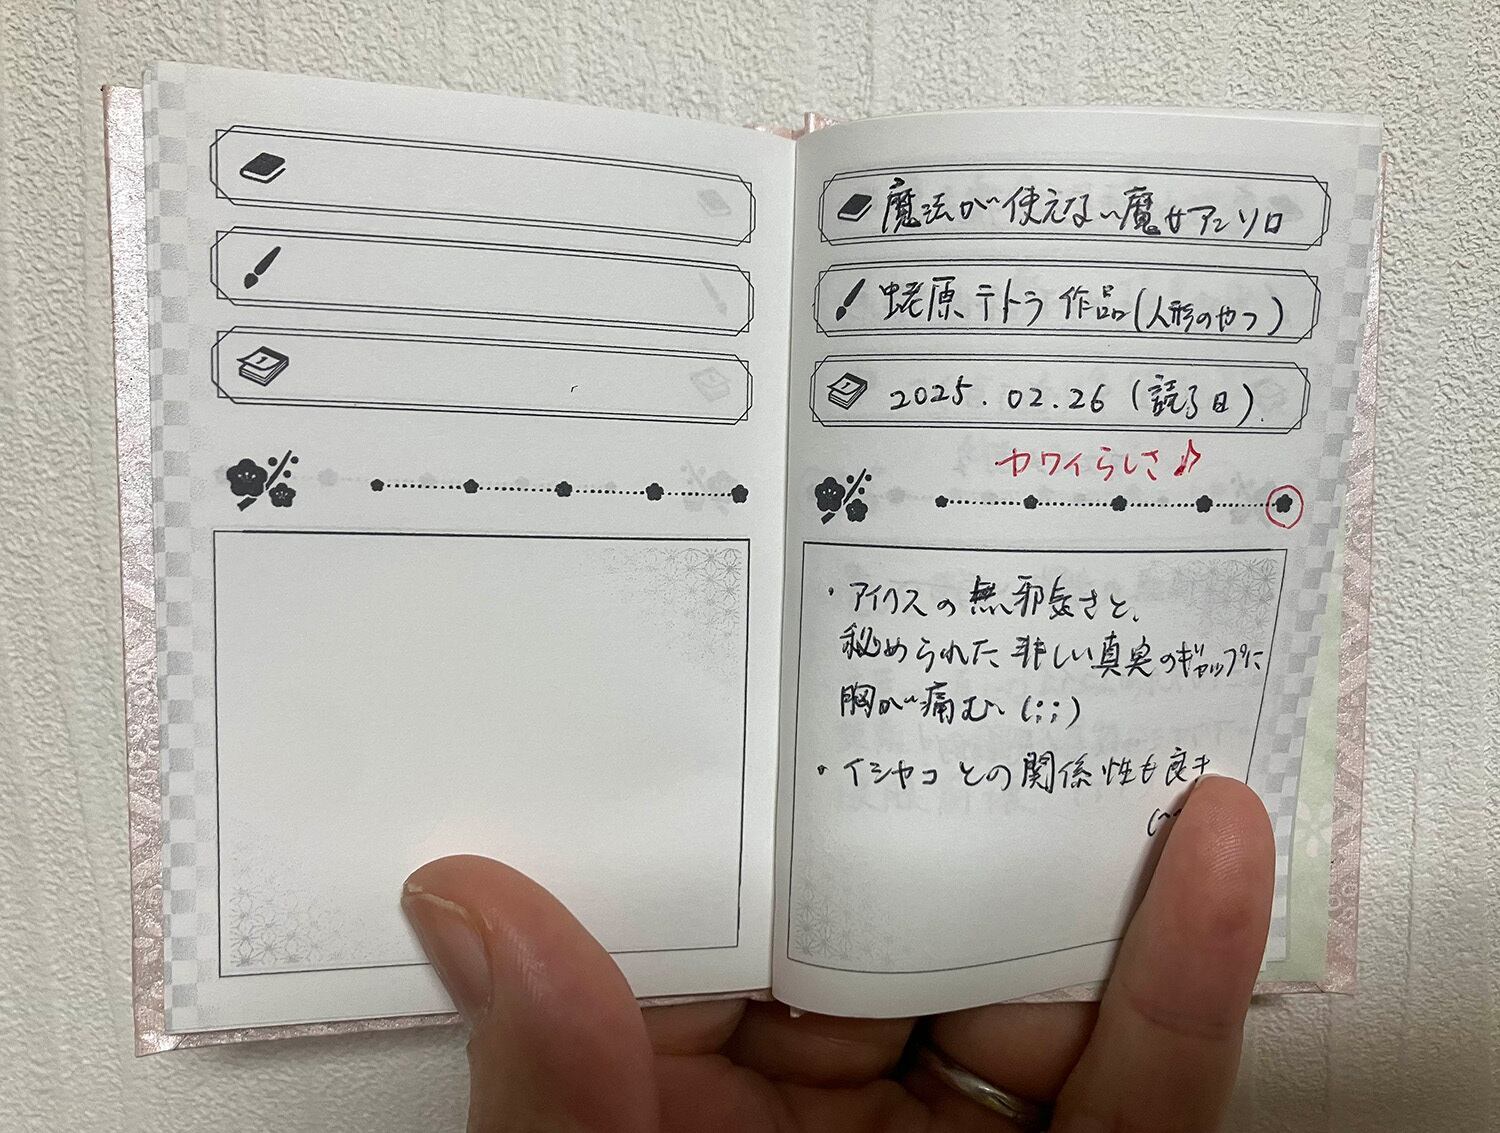 魔法が使えない魔女アンソロ
蛯原テトラ作品(人形のやつ)
2025.02.26(読了日).
カワイらしさ♪
・アイクスの無邪気さと、
秘められた悲しい真実のギャップに
胸が痛む(;;)
・イシャコとの関係性も良き